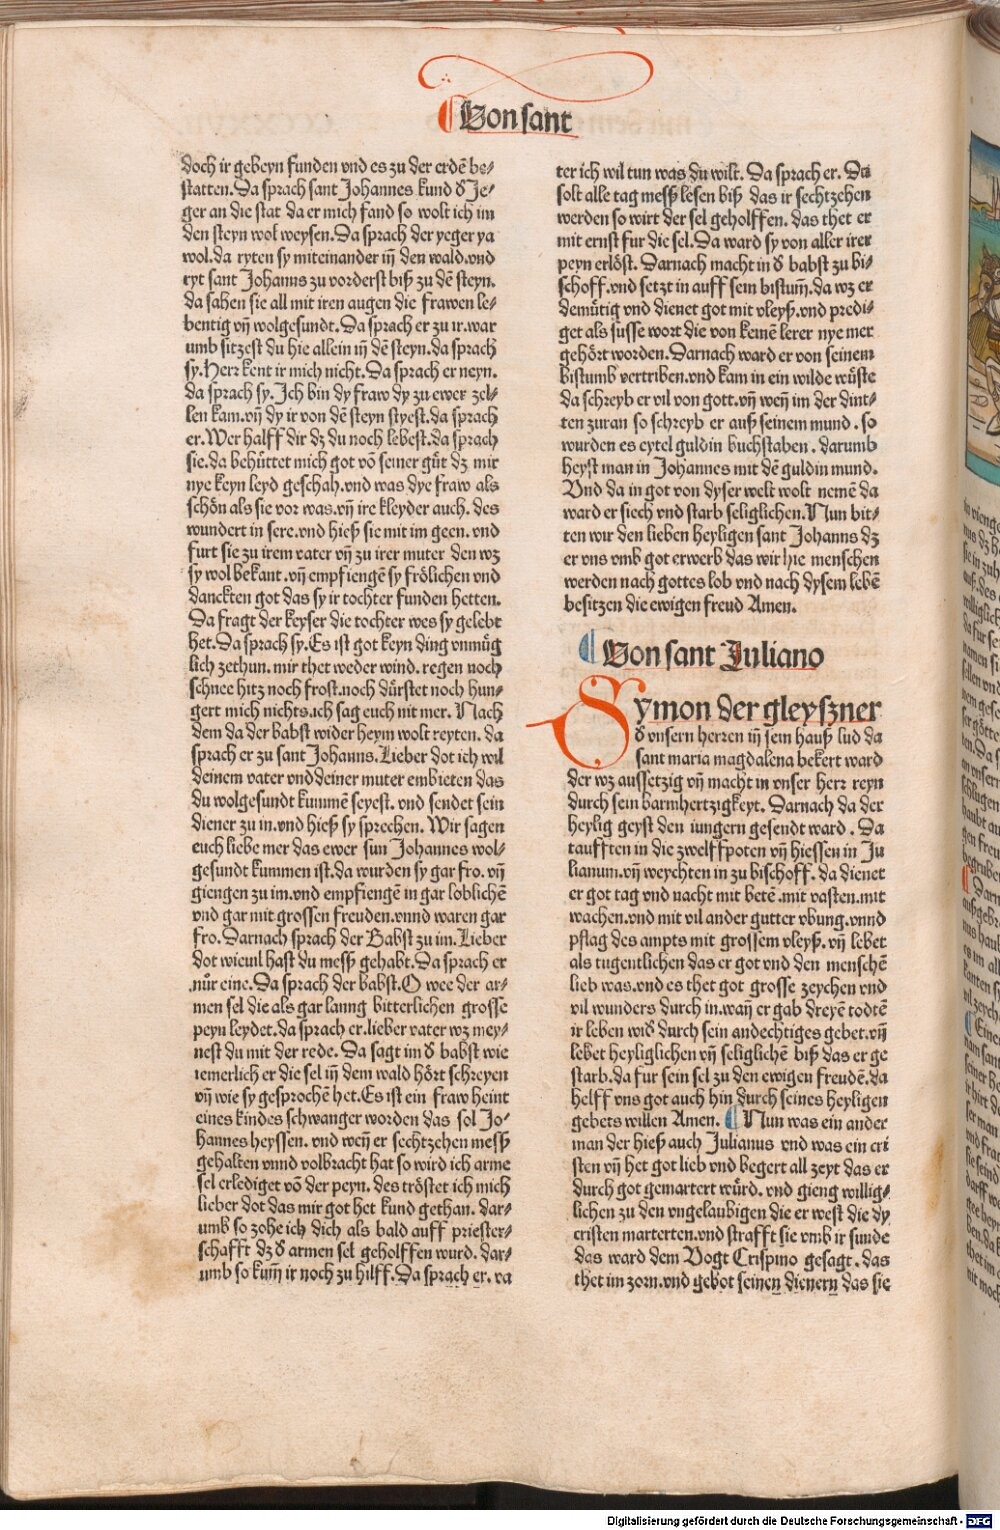 Von sant
doch ir gebeyn funden vnd es zu der erdē be-
statten. Da sprach sant Johannes kund d Je-
ger an die stat da er mich fand so wolt ich im
den steyn wol weysen. Da sprach der yeger ya
wol. da ryten sy miteinander iñ den wald. vnd
ryt sant Johanns zu vorderst biß zu dē steyn.
da sahen sie all mit iren augen die frawen le-
bentig vñ wolgesundt. Da sprach er zu ir. war
umb sitzest du hie allein iñ dē steyn. da sprach
sy. Herr kent ir mich nicht. Da sprach er neyn.
da sprach sy. Ich bin dy fraw dy zu ewer zel-
len kam. vñ dy ir von dē steyn styest. da sprach
er. Wer halff dir dz du noch lebest. da sprach
sie. da behüttet mich got vō seiner güt dz mir
nye keyn leyd geschah. vnd was dye fraw als
schön als sie vor was. vñ ire kleyder auch. des
wundert in sere. vnd hieß sie mit im geen. vnd
furt sie zu irem vater vñ zu irer muter den wz
sy wol bekant. vñ empfiengē sy frölichen vnd
danckten got das sy ir tochter funden hetten.
Da fragt der keyser die tochter wes sy gelebt
het. Da sprach sy. Es ist got keyn ding vnmüg
lich zethun. mir thet weder wind. regen noch
schnee hitz noch frost. noch dürstet noch hun-
gert mich nichts. ich sag euch nit mer. Nach
dem da der babst wider heym wolt reyten. da
sprach er zu sant Johanns. Lieber dot ich wil
deinem vater vnd deiner muter embieten das
du wolgesundt kummē seyest. vnd sendet sein
diener zu in. vnd hieß sy sprechen. Wir sagen
euch liebe mer das ewer sun Johannes wol-
gesundt kummen ist. da wurden sy gar fro. vñ
giengen zu im. vnd empfiengē in gar loblichē
vnd gar mit grossen freuden. vnnd waren gar
fro. Darnach sprach der Babst zu im. Lieber
dot wieuil hast du messz gehabt. Da sprach er
nůr eine. Da sprach der babst. O wee der ar-
men sel die als gar lanng bitterlichen grosse
peyn leydet. da sprach er. lieber vater wz mey-
nest du mit der rede. Da sagt im d babst wie
iemerlich er die sel iñ dem wald hört schreyen
vñ wie sy gesprochē het. Es ist ein fraw heint
eines kindes schwanger worden das sol Jo-
hannes heyssen. vnd weñ er sechtzehen messz
gehalten vnnd volbracht hat so wird ich arme
sel erlediget vō der peyn. des tröstet ich mich
lieber dot das mir got het kund gethan. dar-
umb so zohe ich dich als bald auff priester-
schafft dz d armen sel geholffen wurd. dar-
umb so kum̄ ir noch zu hilff. Da sprach er. va
ter ich wil tun was du wilt. Da sprach er. Du
solt alle tag messz lesen biß das ir sechtzehen
werden so wirt der sel geholffen. das thet er
mit ernst fur die sel. Da ward sy von aller irer
peyn erlöst. Darnach macht in d babst zu bi-
schoff. vnd setzt in auff sein bistum̄. da wz er
demütig vnd dienet got mit vleyß. vnd predi-
get als susse wort die von kemē lerer nye mer
gehört worden. Darnach ward er von seinem
bistumb vertriben. vnd kam in ein wilde wüste
da schreyb er vil von gott. vñ weñ im der dint-
ten zuran so schreyb er auß seinem mund. so
wurden es eytel guldin buchstaben. darumb
heyst man in Johannes mit dē guldin mund.
Vnd da in got von dyser welt wolt nemē da
ward er siech vnd starb seliglichen. Nun bit-
ten wir den lieben heyligen sant Johanns dz
er vns vmb got erwerb das wir hie menschen
werden nach gottes lob vnd nach dysem lebē
besitzen die ewigen freud Amen.
Von sant Juliano
Symon der gleyszner
d vnsern herren iñ sein hauß lud da
sant maria magdalena bekert ward
der wz aussetzig vñ macht in vnser herr reyn
durch sein barmhertzigkeyt. Darnach da der
heylig geyst den iungern gesendt ward. Da
taufften in die zwelffpoten vñ hiessen in Ju
lianum. vñ weychten in zu bischoff. da dienet
er got tag vnd nacht mit betē. mit vasten. mit
wachen. vnd mit vil ander gutter vbung. vnnd
pflag des ampts mit grossem vleyß. vñ lebet
als tugentlichen das er got vnd den menschē
lieb was. vnd es thet got grosse zeychen vnd
vil wunders durch in. wañ er gab dreyē todtē
ir leben wid durch sein andechtiges gebet. vñ
lebet heyliglichen vñ seliglichē biß das er ge
starb. da fur sein sel zu den ewigen freudē. da
helff vns got auch hin durch seines heyligen
gebets willen Amen. Nun was ein ander
man der hieß auch Julianus vnd was ein cri
sten vñ het got lieb vnd begert all zeyt das er
durch got gemartert würd. vnd gieng willig-
lichen zu den vngelaubigen die er west die dy
cristen marterten. vnd strafft sie vmb ir sunde
das ward dem Vogt Crispino gesagt. das
thet im zorn. vnd gebot seinen dienern das sie
Digitalisierung gefördert durch die Deutsche Forschungsgemeinschaft - DFG